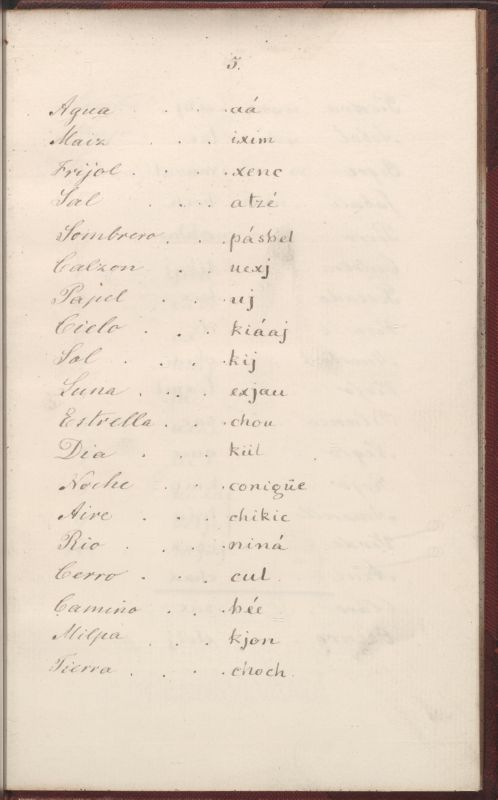 5.
Agua . . . aá
Maiz . . . ixim
Frijol . . . xenc
Sal . . . atzé
Sombrero . . . pásbel
Calzon . . uexj
Papel . . . uj
Cielo . . . kiáaj
Sol . . . kij
Luna . . . exjau
Estrella . . . chou
Dia . . . kiil
Noche . . . conigüe
Aire . . . chikic
Rio . . . niná
Cerro . . . cul.
Camino . . . bée
Milpa . . . kjon
Tierra . . . choch.